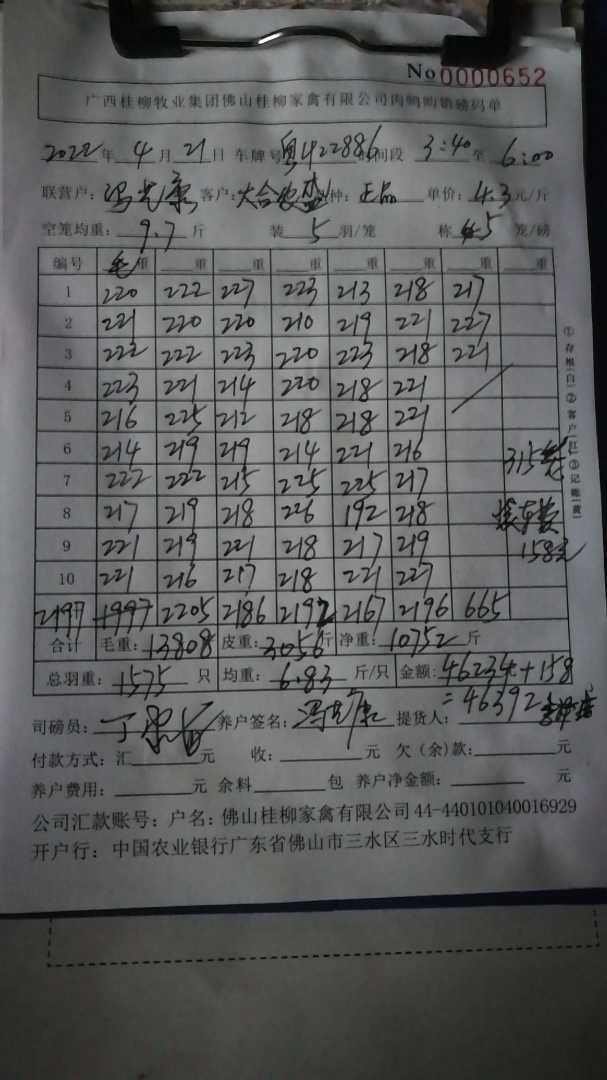 No 0000652
广西桂柳牧业集团佛山桂柳家禽有限公司肉鸭购销磅码单
2022年 4月 21日 车牌号 粤 422886 时间段 3:40 至 6:00
联营户: 冯 康 客户: 大合 种: 正品 单价: 4.3 元/斤
空笼均重: 9.7 斤 装 5 羽/笼 称 5 笼/磅
编号 毛重 重 重 重 重 重 重 重
1 220 222 227 223 213 218 217
2 221 220 220 210 219 221 227
3 222 222 223 220 223 218 221
4 223 221 214 220 218 221
5 216 225 212 218 218 221
6 214 219 219 214 221 216 315
7 222 222 215 225 225 217
8 217 219 218 226 192 218
9 221 219 221 218 217 219 158元
10 221 216 217 218 221 227
2197 1997 2205 2186 2192 2167 2196 665
合计 毛重: 13808 皮重: 3056 斤 净重: 10752 斤
总羽重: 1575 只 均重: 6.83 斤/只 金额: 46234+158
=46392
司磅员: 丁 养户签名: 冯 康 提货人:
付款方式: 汇 元 收: 元 欠(余)款: 元
养户费用: 元 余料 包 养户净金额: 元
公司汇款账号: 户名: 佛山桂柳家禽有限公司 44-440101040016929
开户行: 中国农业银行广东省佛山市三水区三水时代支行
①存根(白)②客户(红)③记账(黄)